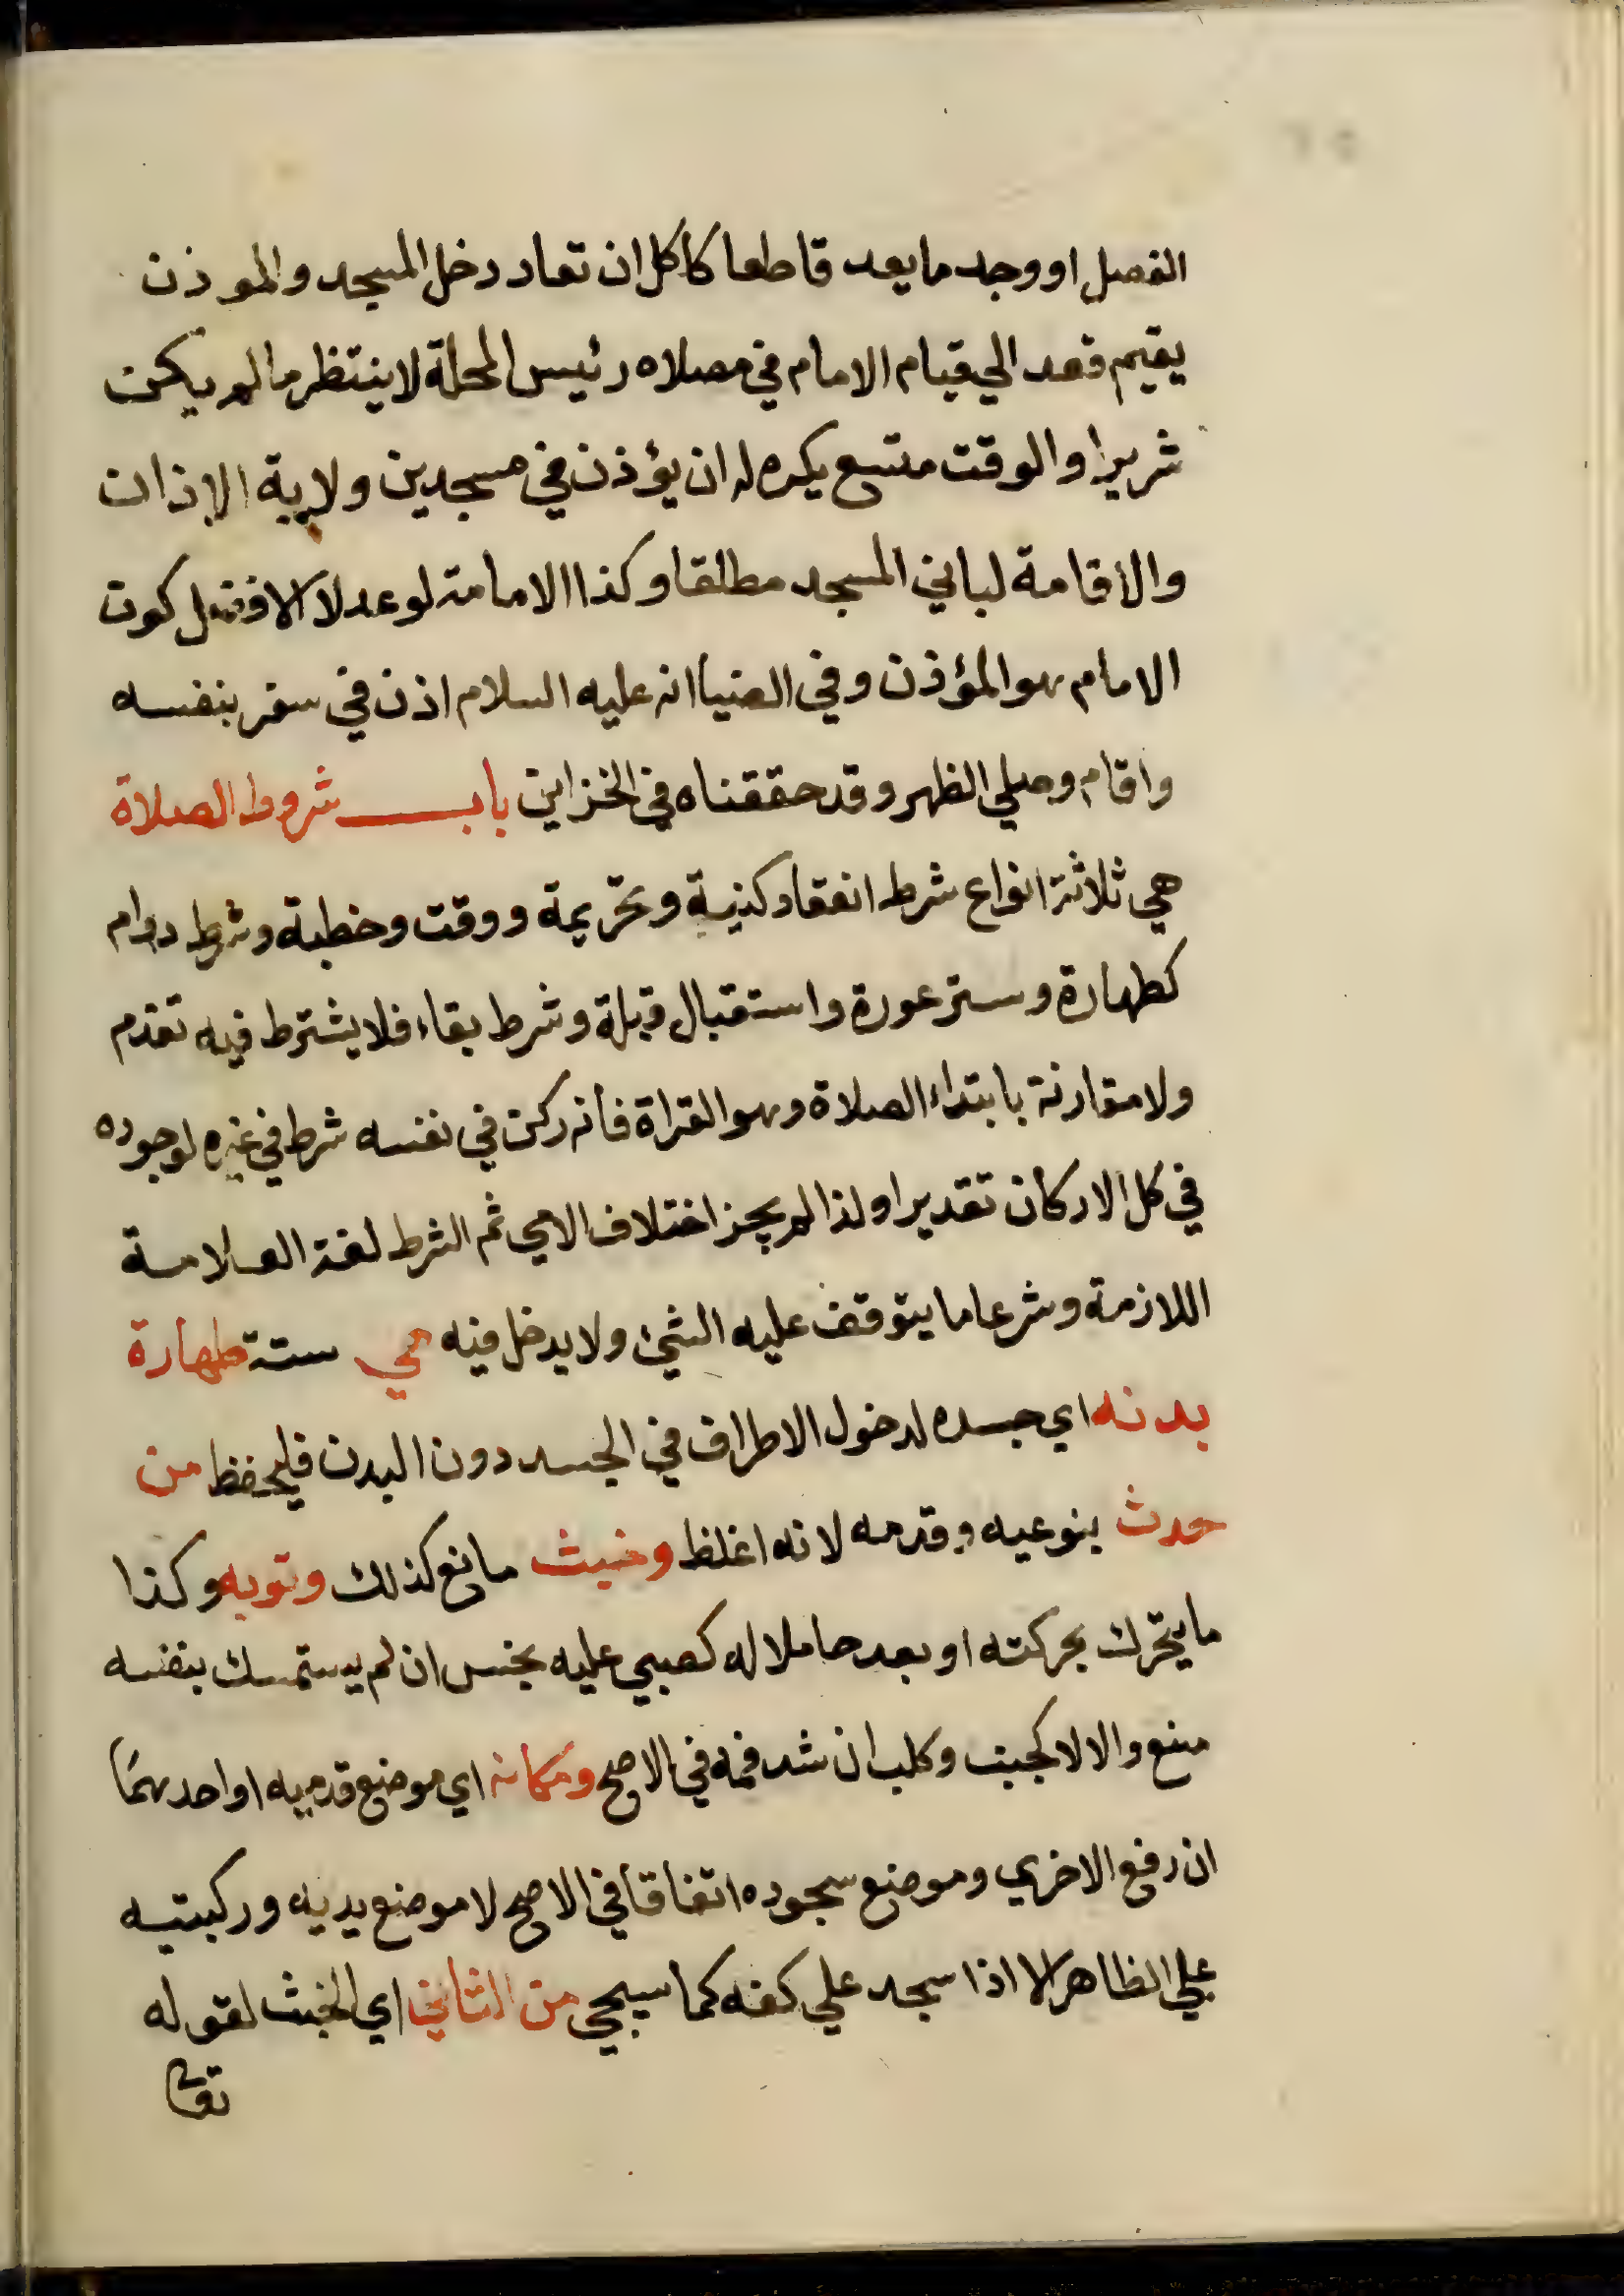 الفصل او وجد ما يعد قاطعا كاكل ان تعاد دخل المسجد والموذن
يقيم قعد الي قيام الامام في مصلاه رئيس المحلة لا ينتظر ما لم يكن
شريرا والوقت متسع يكره له ان يؤذن في مسجدين ولاية الاذان
والاقامة لباني المسجد مطلقا وكذا الامامة لو عدلا الافضل كون
الامام هو المؤذن وفي الضيا انه عليه السلام اذن في سفر بنفسه
واقام وصلي الظهر وقد حققناه في الخزاين باب شروط الصلاة
هي ثلاثة انواع شرط انعقاد كنية وتحريمة ووقت وخطبة وشرط دوام
كطهارة وستر عورة واستقبال قبلة وشرط بقاء فلا يشترط فيه تقدم
ولا مقارنة بابتداء الصلاة وهو القراة فانه ركن في نفسه شرط في غيره لوجوده
في كل الاركان تقديرا ولذا لم يجز اختلاف الامي ثم الشرط لغة العلامة
اللازمة وشرعا ما يتوقف عليه الشئ ولا يدخل فيه هي ستة طهارة
بدنه اي جسده لدخول الاطراف في الجسد دون البدن فليحفظ من
حدث بنوعيه وقدمه لانه اغلظ وخبث مانع كذلك وثوبه وكذا
ما يتحرك بحركته او يعد حاملا له كصبي عليه نجس ان لم يستمسك بنفسه
منع والا لا كجنب وكلب ان شد فمه في الاصح ومكانه اي موضع قدميه او احدهما
ان رفع الاخري وموضع سجوده اتفاقا في الاصح لا موضع يديه وركبتيه
علي الظاهر الا اذا سجد علي كفه كما سيجي من الثاني اي الخبث لقوله
تعالي